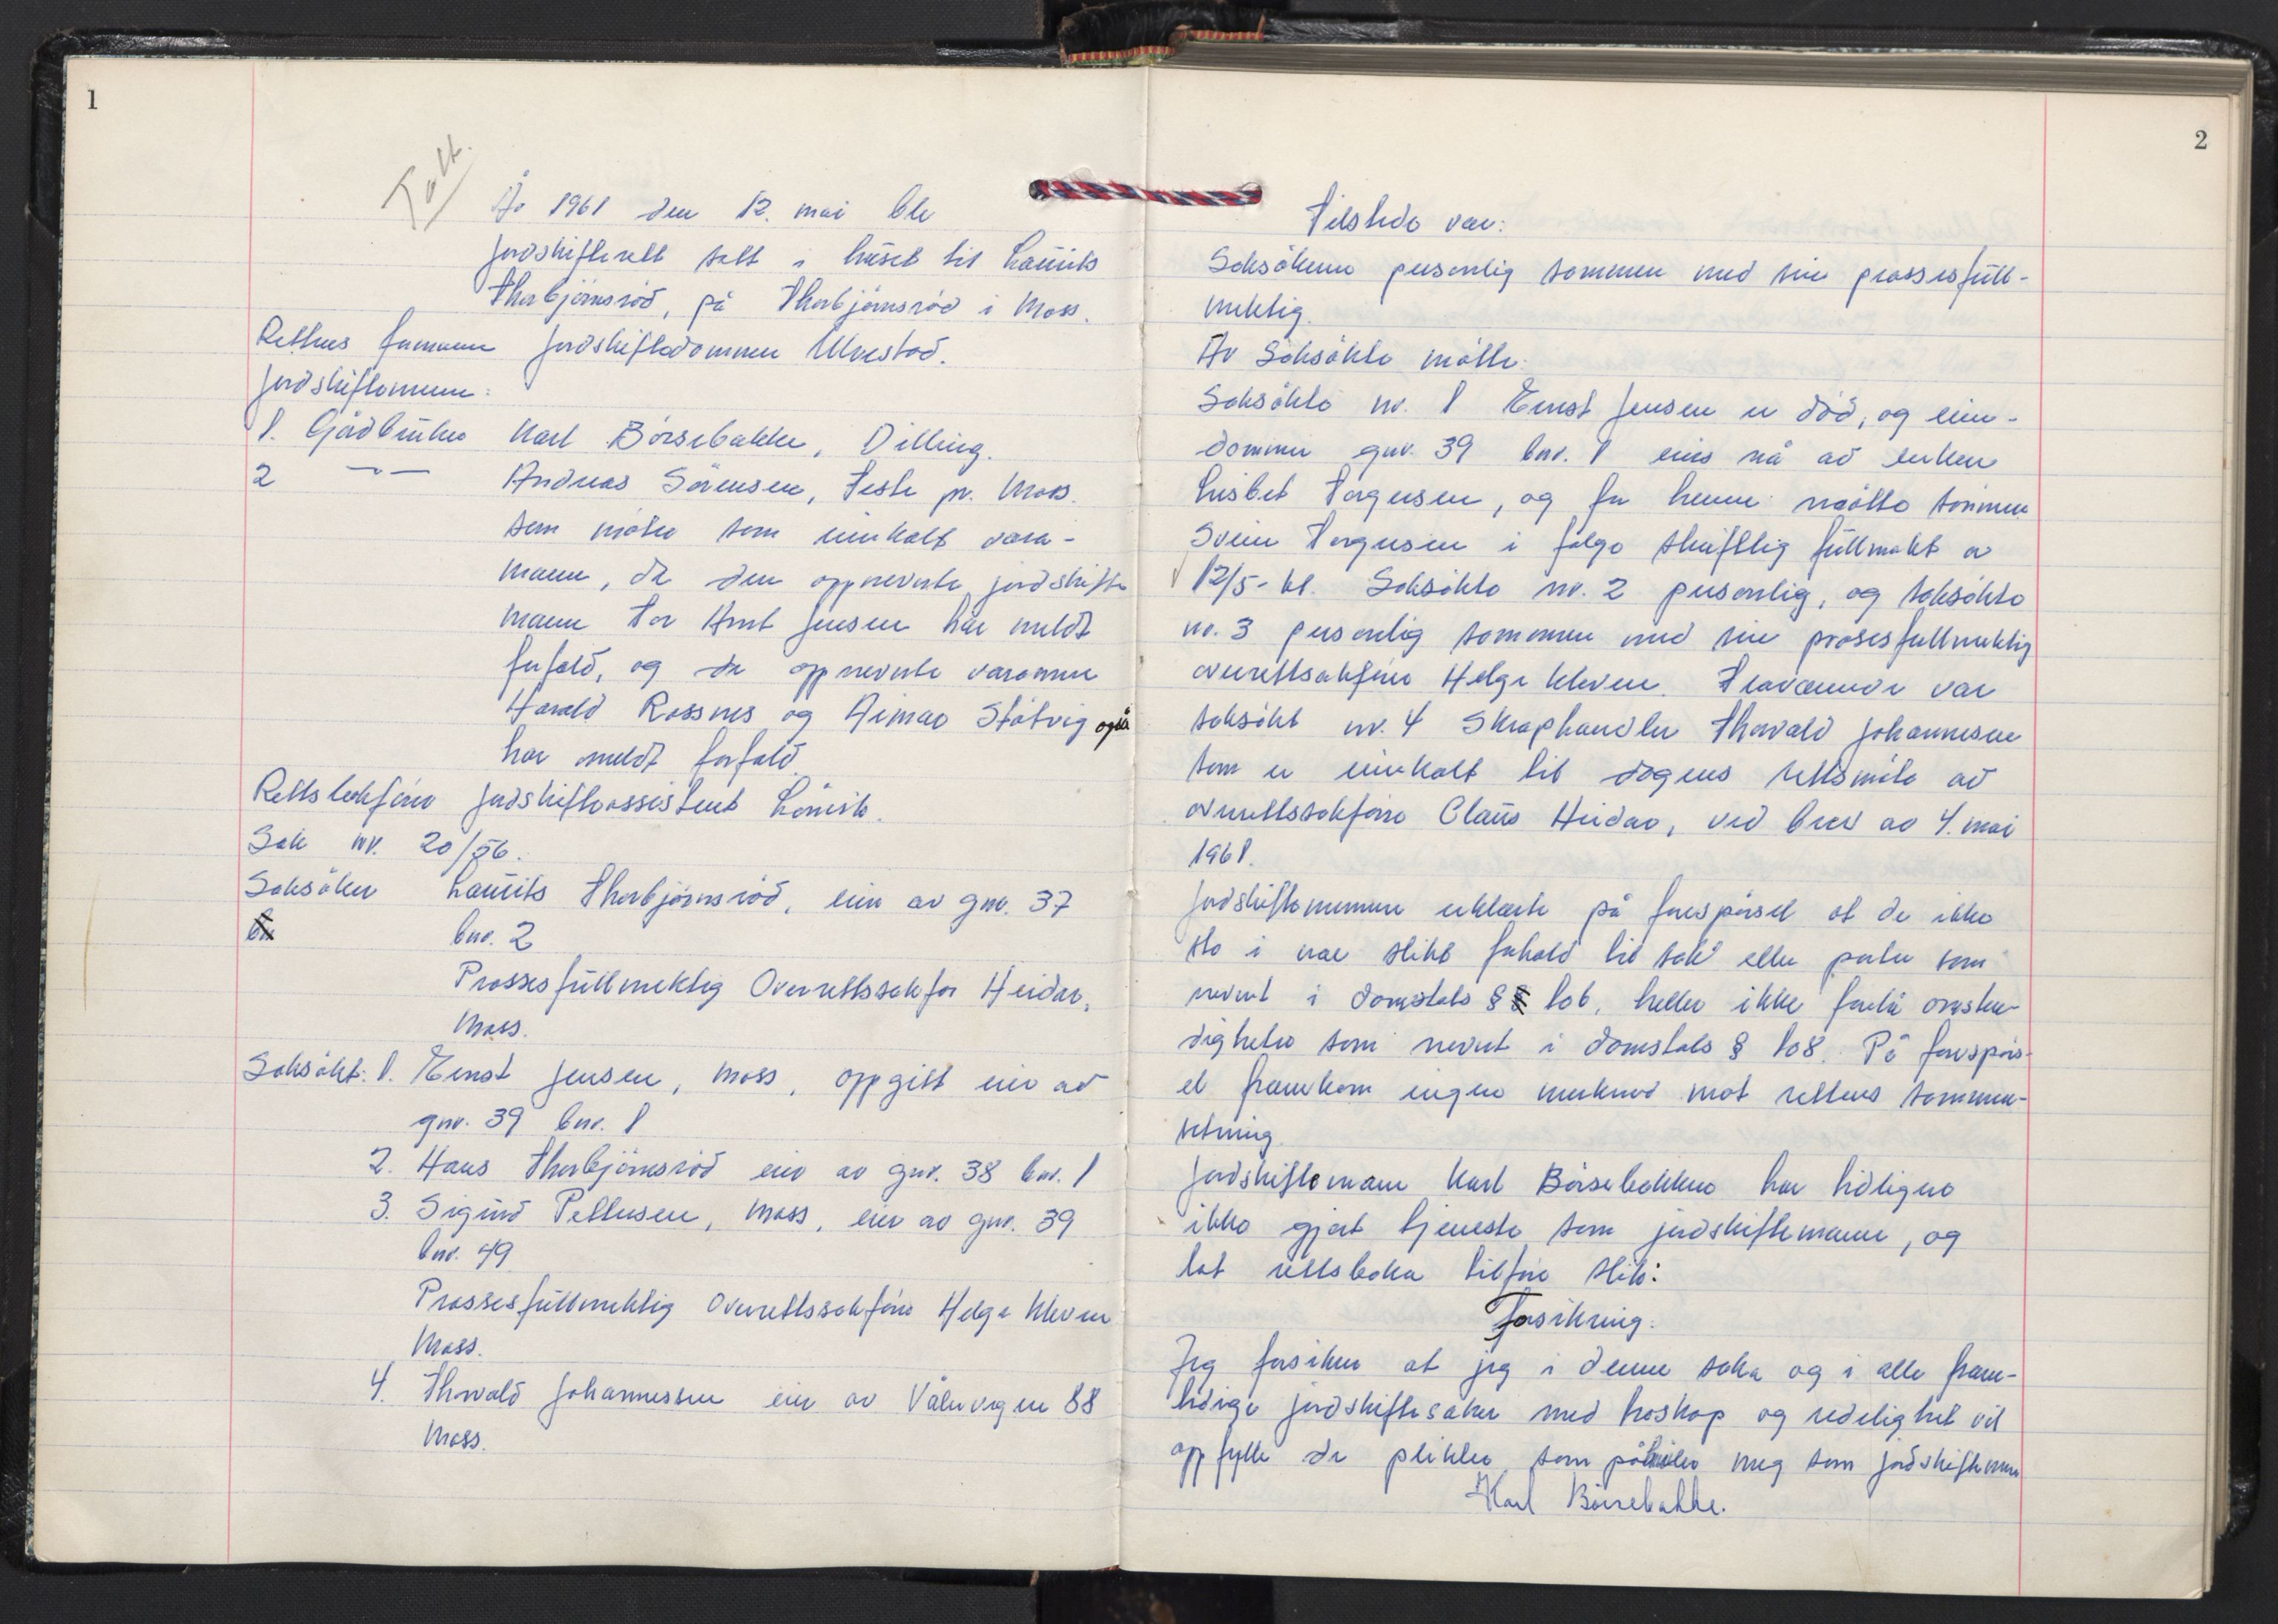 1
Tolt.
År 1961 den 12. mai ble
jordskifterett satt i huset til Lauits
Thorbjörnsröd, på Thorbjörnsröd i Moss.
Rettens formann jordskiftedommer Ulvestad.
Jordskiftemenn:
1. Gårdbruker Karl Börsebakke, Dilling.
2 —"— Andreas Sörensen, Feste pr. Moss.
som möter som innkalt vara-
mann, da den oppnevnte jordskifte
mann Tor Arnt Jensen har meldt
forfald, og de oppnevnte varamenn
Harald Rossnes og Aimar Stötvig også
har meldt forfald.
Rettsbokförer jordskifteassistent Lömsk.
Sak nr. 20/56.
Saksöker Lauits Thorbjörnsröd, eier av gnr. 37
bnr. 2
Prossesfullmektig Overrettssakför Heidar,
Moss.
Saksökt: 1. Ernst Jensen, Moss, oppgitt eier av
gnr. 39 bnr. 1
2. Hans Thorbjörnsröd eier av gnr. 38 bnr. 1
3. Sigurd Pettersen, Moss, eier av gnr. 39
bnr. 49
Prossesfullmektig Overrettssakförer Helge Kleven
Moss.
4. Thorvald Johannessen eier av Vålervegen 88
Moss.
2
Tilstede var:
Saksökeren personlig sammen med sin prossesfull-
mektig.
Av Saksökte mötte:
Saksökte nr. 1 Ernst Jensen er död, og eien-
dommen gnr. 39 bnr. 1 eies nå av enken
Lisbet Torgersen, og for henne mötte sönnen
Svein Torgersen i fölge skriftlig fullmakt av
12/5-61. Saksökte nr. 2 personlig, og saksökte
nr. 3 personlig sammen med sin prosesfullmektig
overrettsakförer Helge Kleven. Fraværende var
saksökt nr. 4 Skraphandler Thorvald Johannesen
som er innkalt til dagens rettsmöte av
overrettssakförer Claus Heidar, ved brev av 4. mai
1961.
Jordskiftemennene erklærte på forespörsel at de ikke
sto i noe slikt forhold til sak eller parter som
nevnt i domstols § 106, heller ikke forelå omsten-
digheter som nevnt i domstols § 108. På forespörs-
el framkom ingen merknad mot rettens sammen-
setning.
Jordskiftemann Karl Börsebakke har tidligere
ikke gjort tjeneste som jordskiftemann, og
lot rettsboka tilföre slik:
Forsikring:
Jeg forsikrer at jeg i denne saka og i alle fram-
tidige jordskiftesaker med troskap og redelighet vil
oppfylle de plikter som påhviler meg som jordskiftemann
Karl Börsebakke.